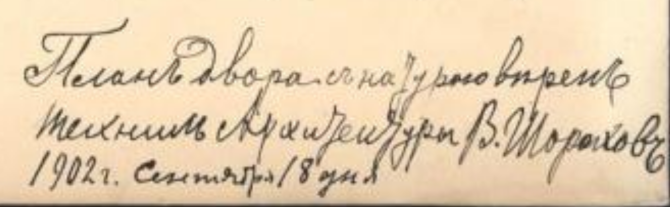 Планъ двора съ натурою вѣренъ
Техникъ Архитектуры В. Шороховъ
1902 г. Сентября 18 дня